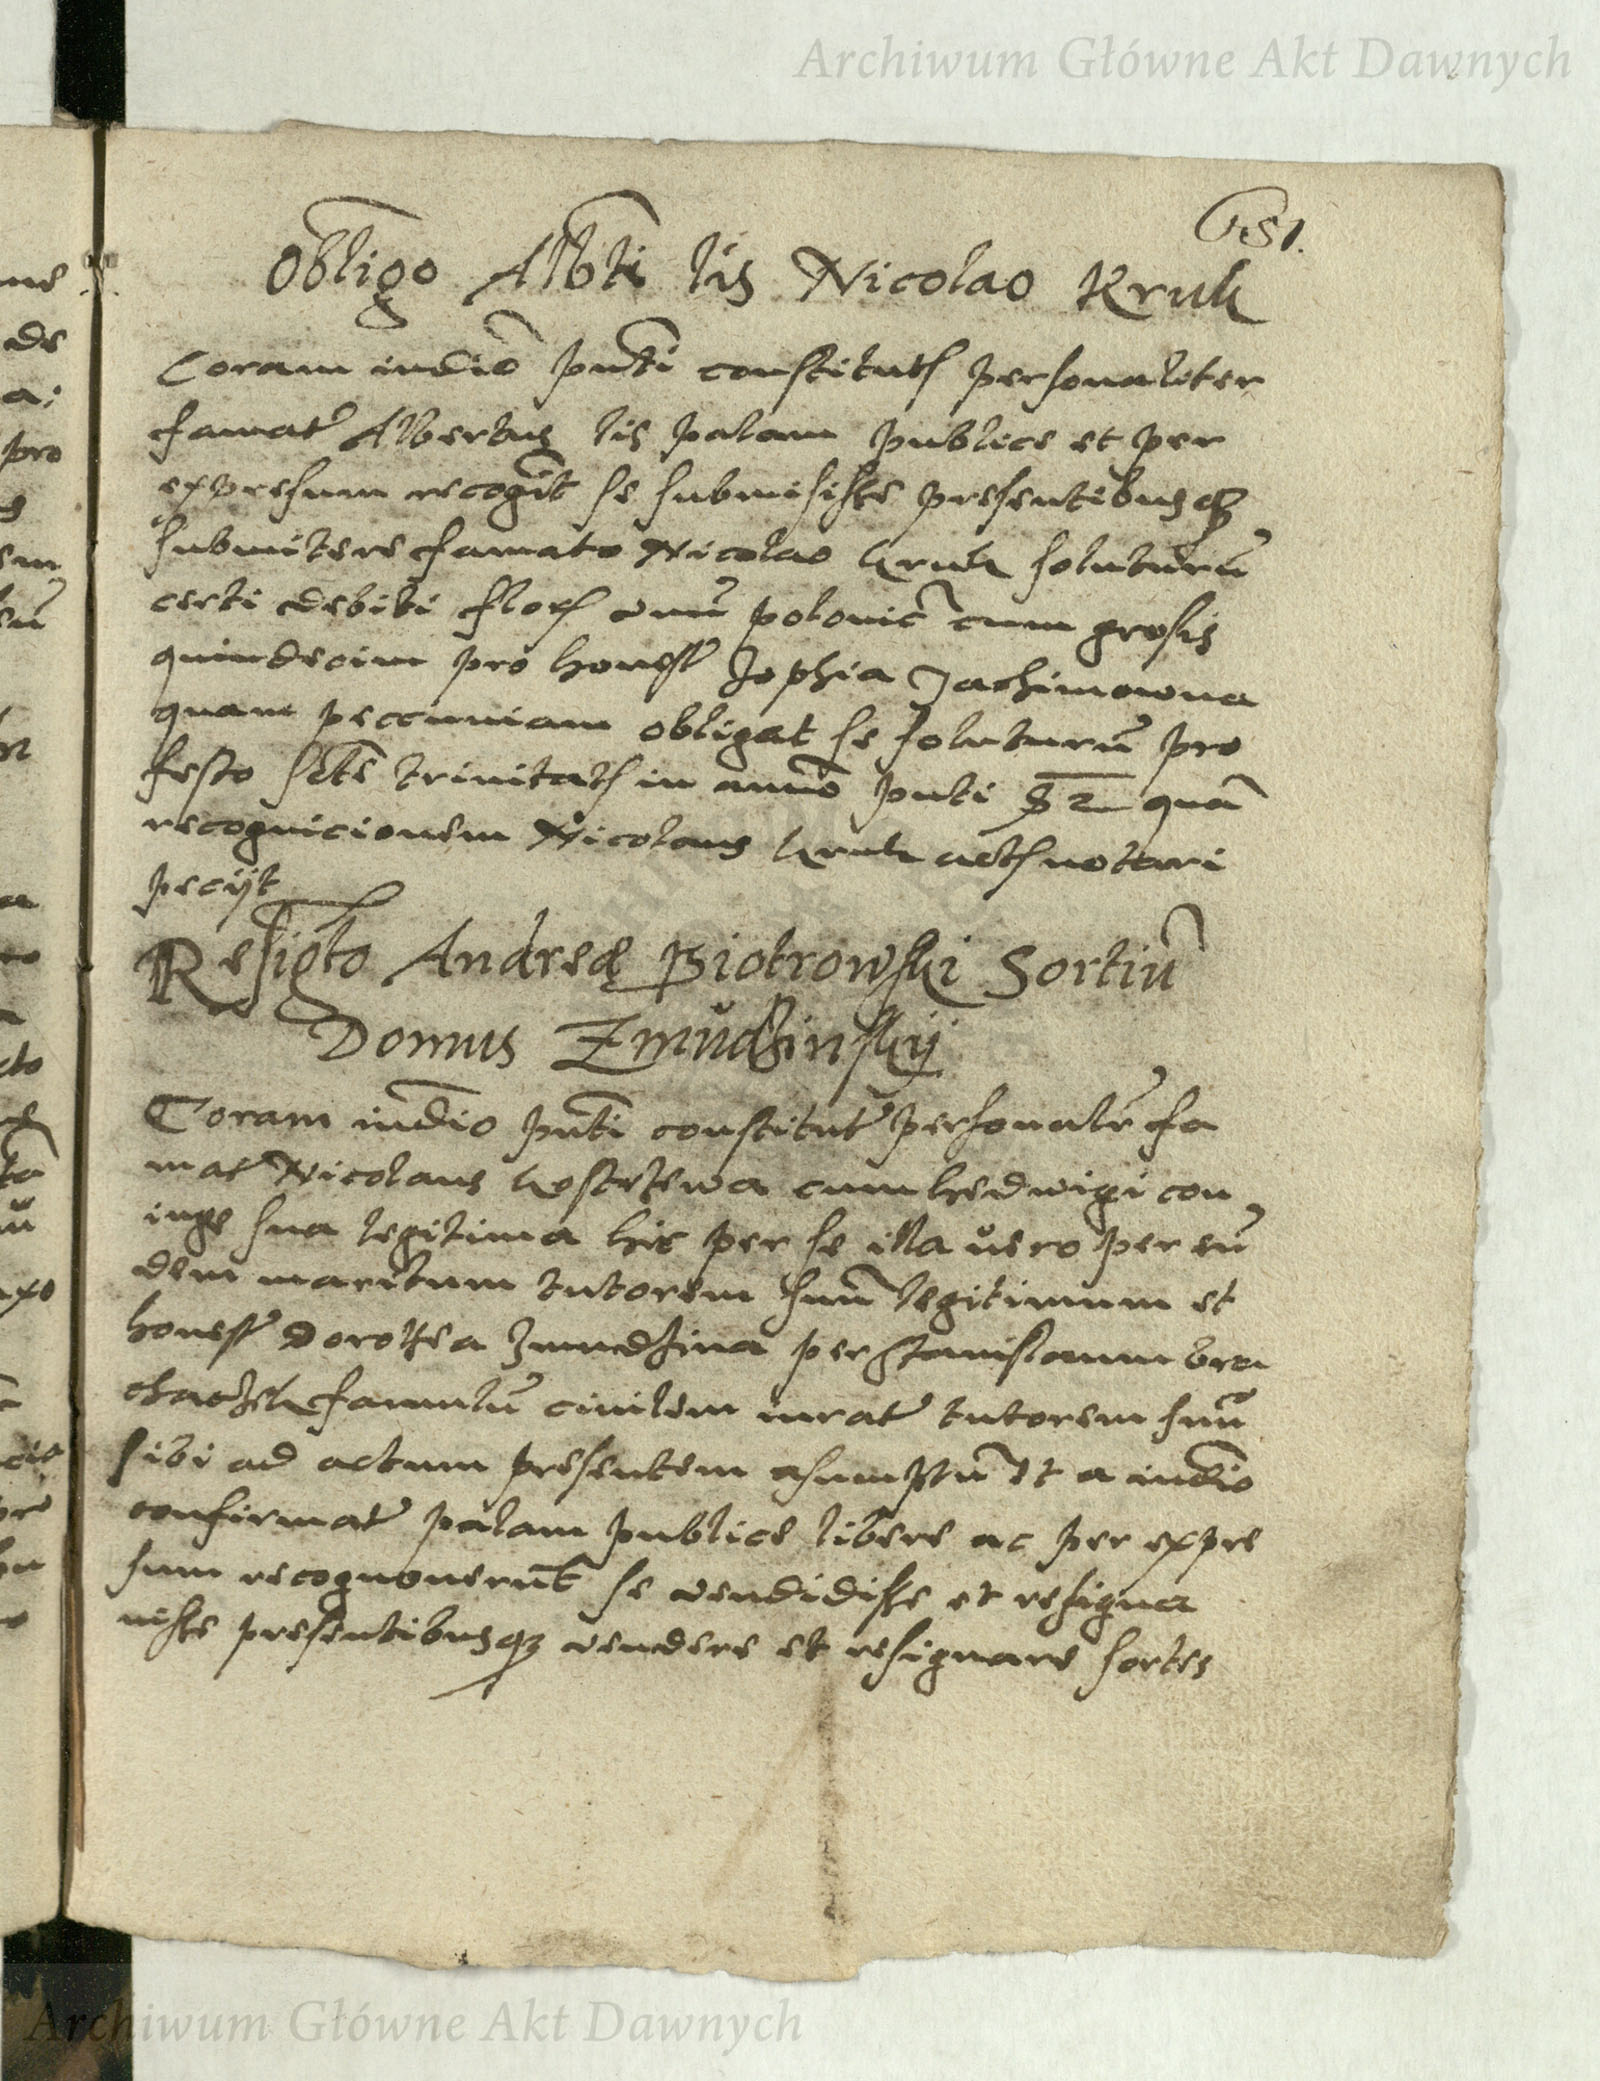 Archiwum Główne Akt Dawnych
651.
Obligo Albti lis Nicolao Kruk
Coram iudio pnti constitut personaliter
famat Albertus lis palam publice et per
expresum recognit se submisisse presentibusq
submitere famato Nicolao kruk soluturu
certi debiti flor unu polonic cum grosis
quindecim pro honest Zophia Jachimowna
quam peccuniam obligat se soluturu pro
festo scte trinitat in anno pnti 82 qua
recognicionem Nicolaus kruk act notari
peciit
Resigto Andreę Piotrowski Sortiu
Domus Zmudzinskij
Coram iudio pnti constitut personalr fa
mat Nicolaus kostrzewa cum hedwigi con
iuge sua legitima hic per se illa vero per eu
dem maritum tutorem suu legitimum et
honest Dorothea Zmudzina per Stanislaum bra
famulu civilem iurat tutorem suu
sibi ad actum presentem asumptu et a iudio
confirmat palam publice libere ac per expre
sum recognoverunt se vendidisse et resigna
visse presentibusq vendere et resignare sortes
ne
de
a:
pro
Archiwum Główne Akt Dawnych